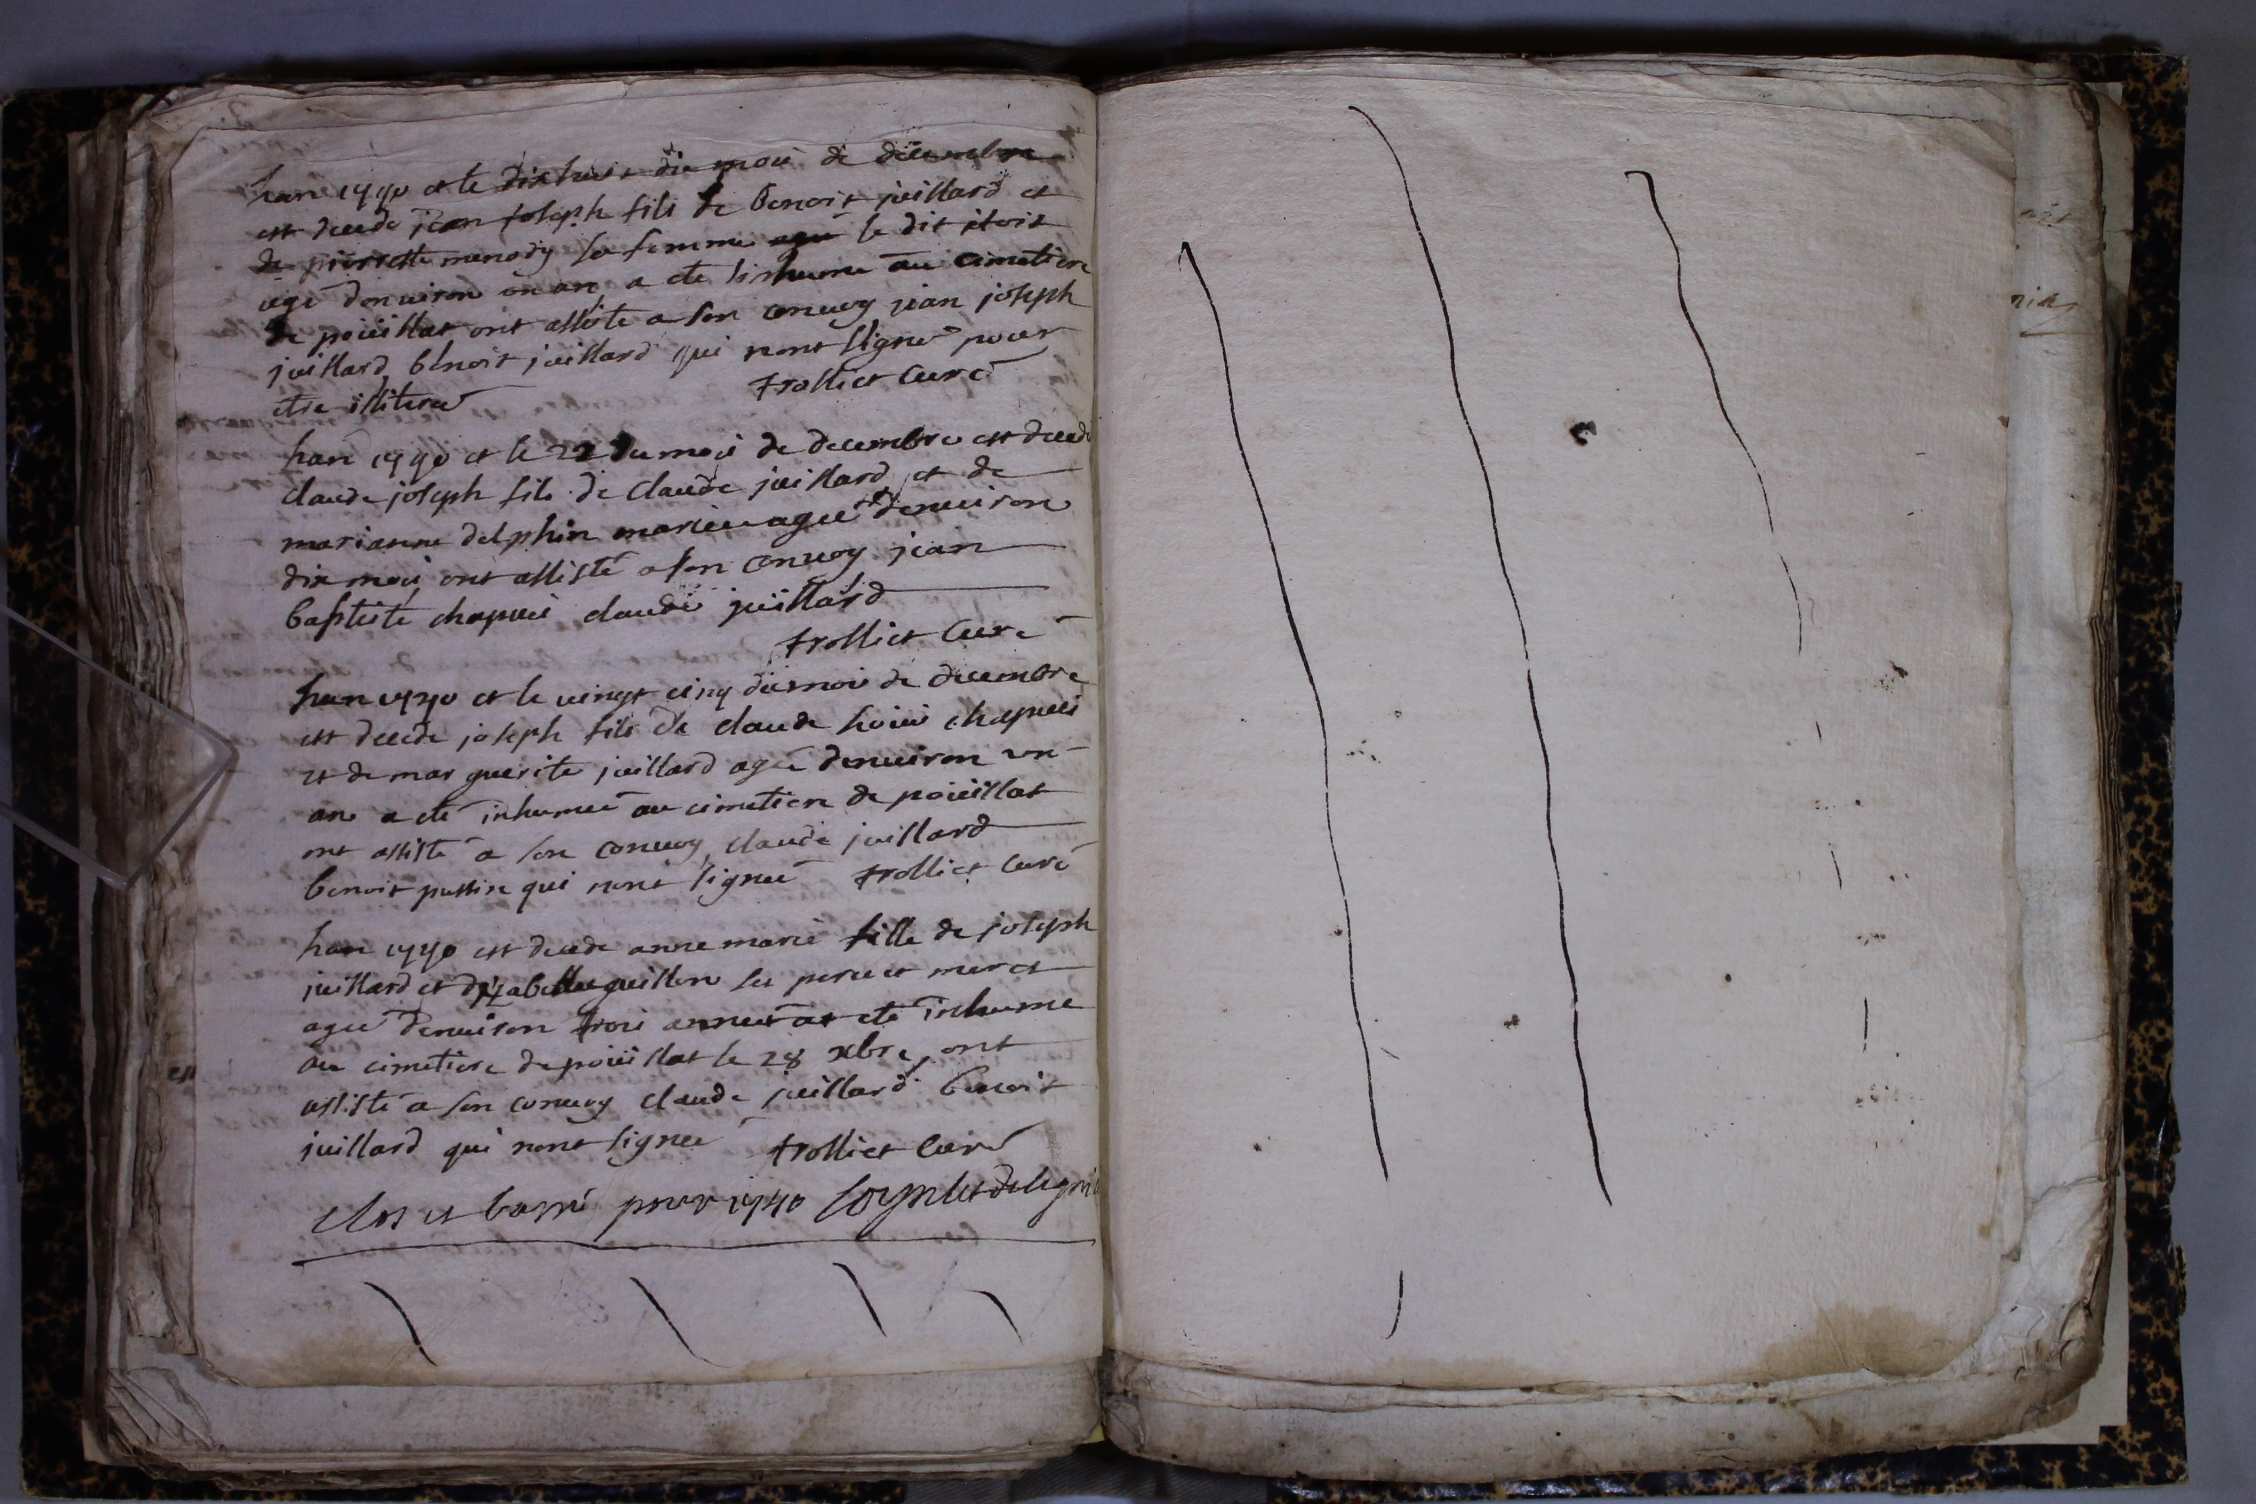 han 1740 et le dix huit du moi de decembre
est decede jean joseph fils de benoit juillard et
de pierrette menody sa femme le dit étoit
agé denuiron un an a eté inhumé au cimetiere
de poüillat ont assisté a son conuoy jean joseph
juillard benoit juillard qui nont signé pour
etre illiteré trolliet curé
han 1740 et le 22 du moi de decembre est decedé
claude joseph fils de claude juillard et de
marianne delphin mariée agée denuiron
dix moi ont assisté a son conuoy jean
baptiste chapuis claude juillard
trolliet curé
han 1740 et le uingt cinq du moi de decembre
est decede joseph fils de claude loüis chapuis
et de marguerite juillard agé denuiron un
an a eté inhumé au cimetiere de poüillat
ont assisté a son conuoy claude juillard
benoit qui nont signée trolliet curé
han 1740 est decede anne marie fille de joseph
juillard et dizabelle guillon ses pere et mere et
agée denuiron troi années at eté inhume
au cimetiere de poüillat le 28 xbre ont
assisté a son conuoy claude juillard benoit
juillard qui nont signée trolliet curé
clos et barré pour 1740